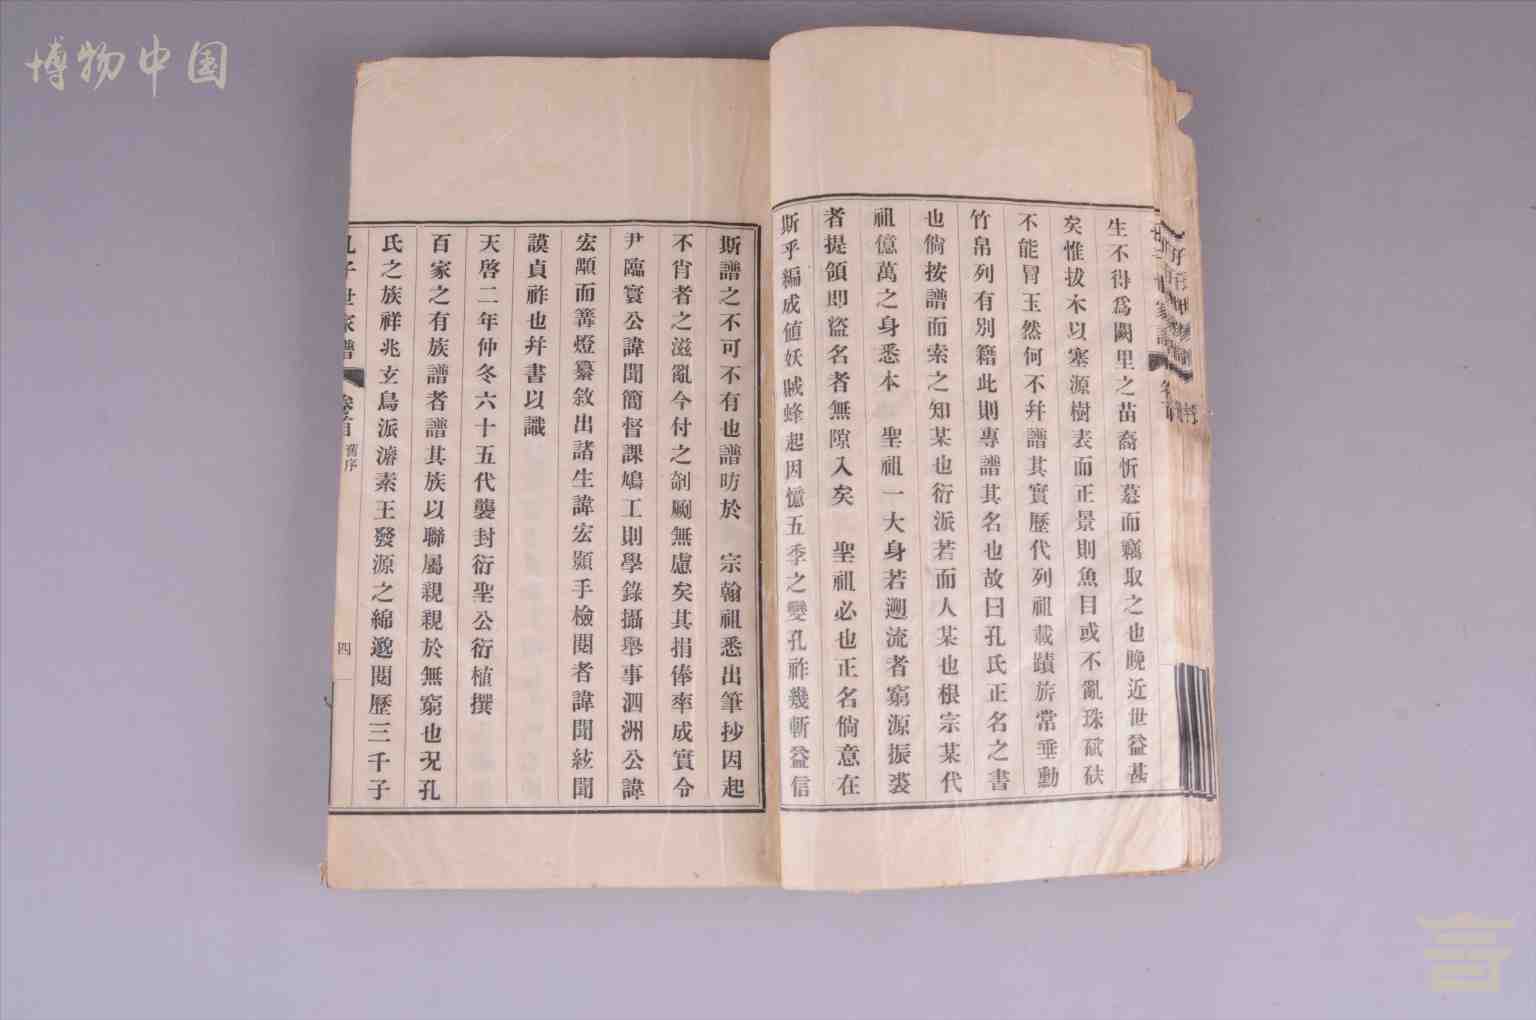 博物中国
生不得爲闕里之苗裔忻慕而竊取之也晚近世益甚
矣惟拔木以塞源樹表而正景則魚目或不亂珠砥砆
不能冐玉然何不幷譜其實歷代列祖載蹟旂常垂勳
竹帛列有別籍此則專譜其名也故曰孔氏正名之書
也倘按譜而索之知某也衍派若而人某也根宗某代
祖億萬之身悉本 聖祖一大身若遡流者窮源振裘
者提領即盜名者無隙入矣 聖祖必也正名倘意在
斯乎編成値妖賊蜂起因憶五季之變孔祚幾斬益信
斯譜之不可不有也譜昉於 宗翰祖悉出筆抄因起
不肖者之滋亂今付之剞劂無慮矣其捐俸率成實令
尹臨寰公諱聞簡督課鳩工則學錄攝舉事泗洲公諱
宏顒而篝燈纂敘出諸生諱宏顥手檢閱者諱聞䋎聞
謨貞祚也幷書以識
天啓二年仲冬六十五代襲封衍聖公衍植撰
百家之有族譜者譜其族以聯屬親親於無窮也況孔
氏之族祥兆玄鳥派濬素王發源之綿邈閱歷三千子
孔子世家譜 卷首 舊序 四